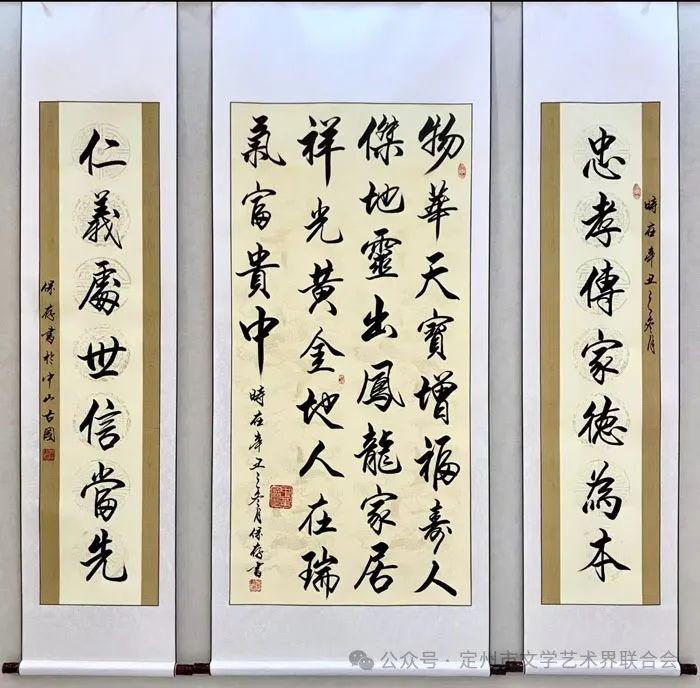 時在辛丑之冬月
忠孝傳家德為本
物華天寶增福壽人
傑地靈出鳳龍家居
祥光黃金地人在瑞
氣富貴中
時在辛丑之冬月保存書
仁義處世信當先
保存書於中山古國
公众号 · 定州市文学艺术界联合会